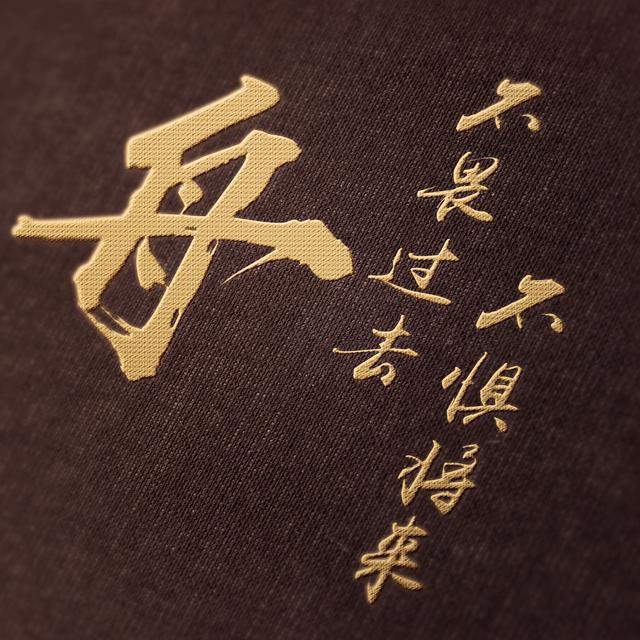 舟
不畏过去
不惧将来